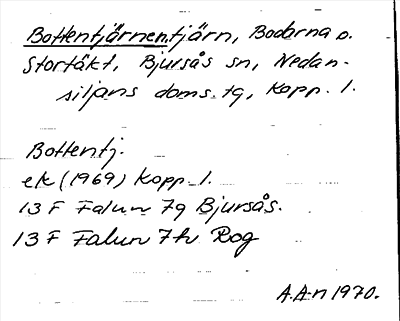 Bottentjärnen, tjärn, Bodarna o.
Stortäkt, Bjursås sn, Nedan-
siljans doms. tg, Kopp. l.
Bottentj.
ek (1969) Kopp. l.
13 F Falun 7g Bjursås.
13 F Falun 7h Rog
A.A-n 1970.